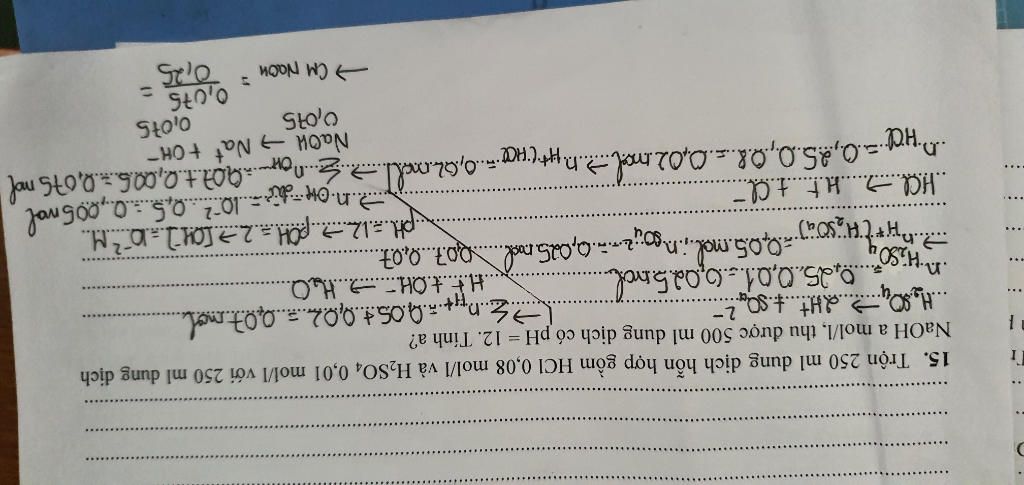 15. Trộn 250 ml dung dịch hỗn hợp gồm HCl 0,08 mol/l và H₂SO₄ 0,01 mol/l với 250 ml dung dịch
NaOH a mol/l, thu được 500 ml dung dịch có pH = 12. Tính a?
H₂SO₄ → 2H⁺ + SO₄²⁻
n H₂SO₄ = 0,25.0,01 = 0,025 mol
→ n H⁺ (H₂SO₄) = 0,05 mol; n SO₄²⁻ = 0,025 mol
HCl → H⁺ + Cl⁻
n HCl = 0,25.0,08 = 0,02 mol → n H⁺ (HCl) = 0,02 mol
→ Σ n H⁺ = 0,05 + 0,02 = 0,07 mol
H⁺ + OH⁻ → H₂O
0,07 0,07
pH = 12 → pOH = 2 → [OH⁻] = 10⁻² M
→ n OH⁻ dư = 10⁻². 0,5 = 0,005 mol
→ Σ n OH⁻ = 0,07 + 0,005 = 0,075 mol
NaOH → Na⁺ + OH⁻
0,075 0,075
→ CM NaOH = 0,075/0,25 =